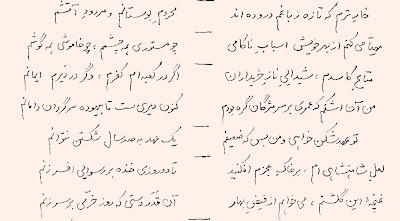 خار ترم که تازه ز باغم دروده اند محروم بوستانم و مردود آتشم
مهیا می کنم از بهر خویش اسباب ناکامی چو مستوری همه چشمم ، چو خاموشی همه گوشم
متاع کاسدم ، شیدایی ناز خریداران اگر در کعبه ام کفرم ، وگر در دیرم ایمانم
من آن اشکم که عمری بر سر مژگان گره بودم کنون دیری ست تا بیهوده سرگردان دامانم
تو عهد شکن خواهی و من بس که ضعیفم یک عهد به صد سال شکستن نتوانم
لعل شاهنشاهی ام ، بر خاک عجزم افکنید تا دو روزی خنده بر رسوایی افسر زنم
غنچهٔ این گلشنم ، می خواهم از فیض بهار آن قدر دستی که روز خرّمی بر سر زنم